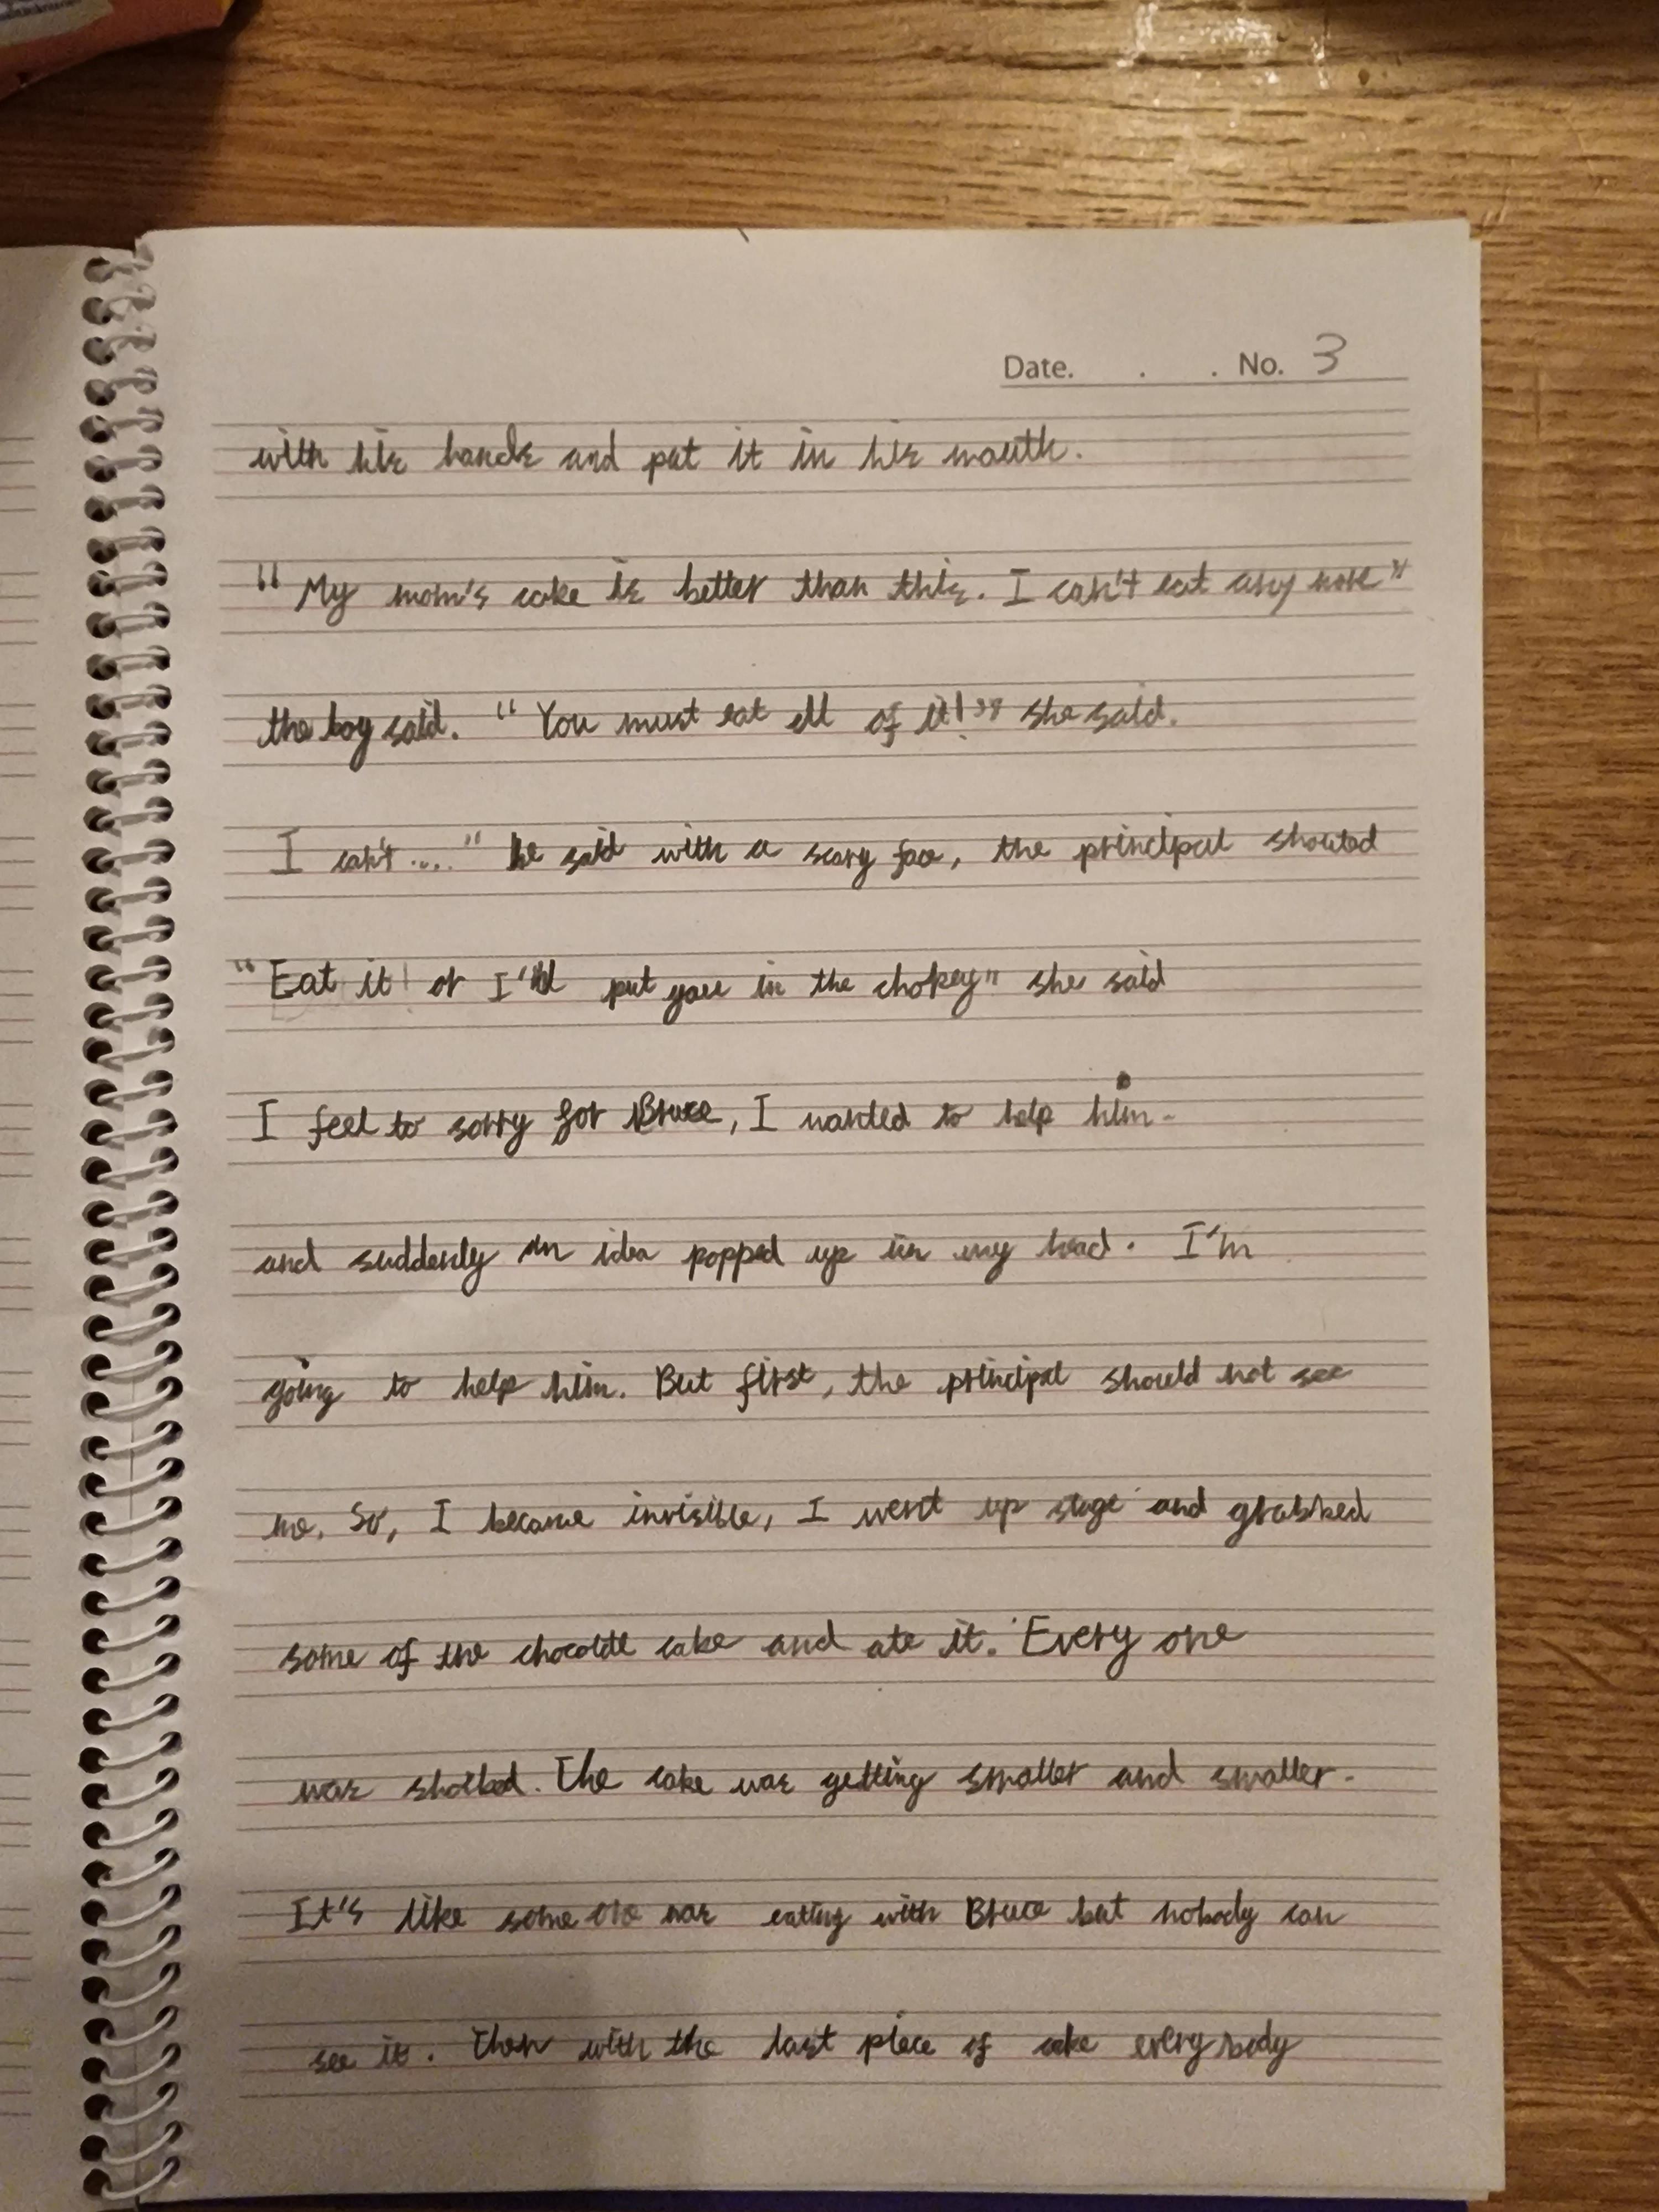 Date. . . No. 3
with his hands and put it in his mouth.
"My mom's cake is better than this. I can't eat any more"
the boy said. "You must eat all of it!" she said.
I can't ...." he said with a scary face, the principal shouted
"Eat it! or I'll put you in the chokey" she said
I feel to sorry for Bruce, I wanted to help him.
and suddenly an idea popped up in my head. I'm
going to help him. But first, the principal should not see
me. So, I became invisible, I went up stage and grabbed
some of the chocolate cake and ate it. Every one
was shocked. The cake was getting smaller and smaller.
It's like some one was eating with Bruce but nobody can
see it. Then with the last piece of cake everybody